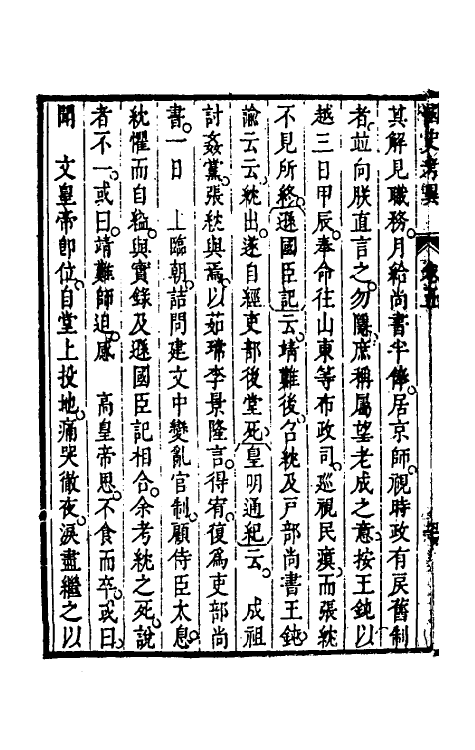 國史考異
卷五
其解見職務月給尚書半俸居京師視時政有戾舊制
者竝向朕直言之勿隱庶稱屬望老成之意按王鈍以
越三日甲辰奉命往山東等布政司巡視民瘼而張紞
不見所終遜國臣記云靖難後召紞及戸部尚書王鈍
諭云云紞出遂自經吏部後堂死皇明通紀云 成祖
討姦黨張紞與焉以茹瑺李景隆言得宥復爲吏部尚
書一日 上臨朝詰問建文中變亂官制顧侍臣太息
紞懼而自縊與實錄及遜國臣記相合余考紞之死說
者不一或曰靖難師迫感 高皇帝恩不食而卒或曰
聞 文皇帝卽位自堂上投地痛哭徹夜淚盡繼之以